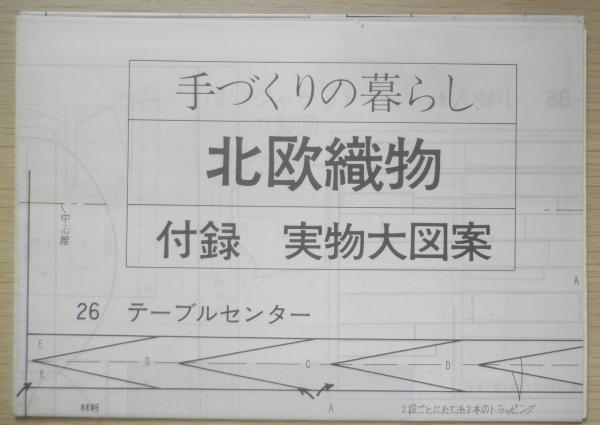 手づくりの暮らし
北欧織物
付録 実物大図案
中心線
A
26 テーブルセンター
E
D
C
D
E
材料
A
2段ごとにたて糸2本のトラッピング